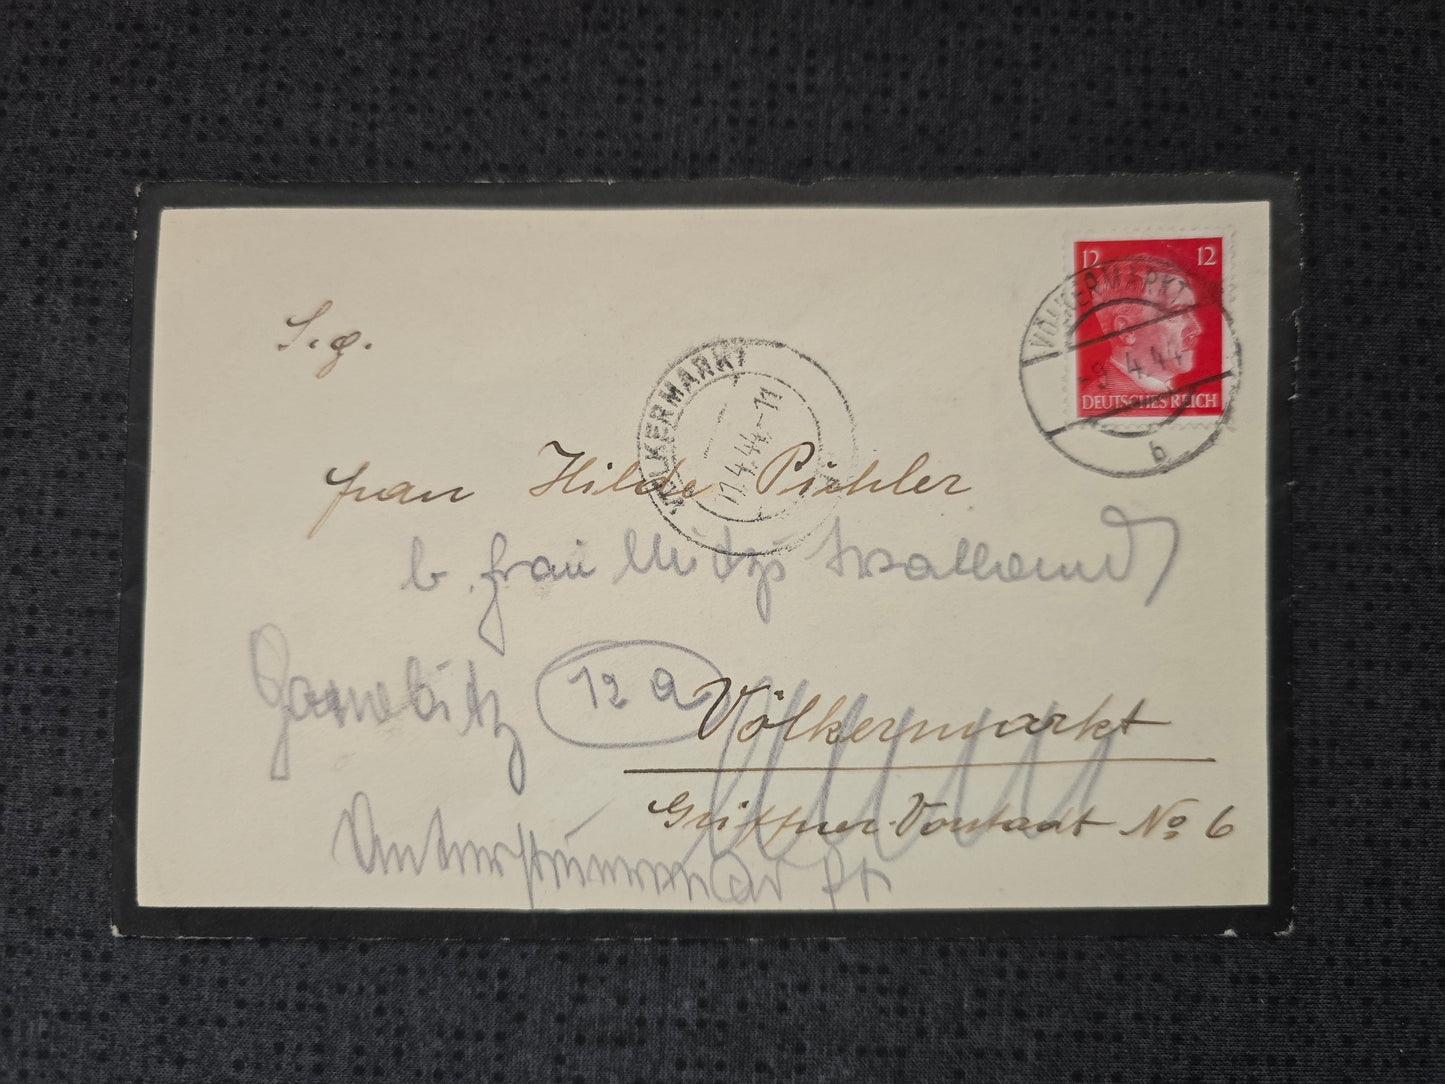 12 12
VÖLKERMARKT
-9.4.44
DEUTSCHES REICH
b
S.g.
VÖLKERMARKT
11.4.44.-11
Frau Hilde Pichler
b. Frau Mitzi
12a Völkermarkt
Griffner Vorstadt No 6